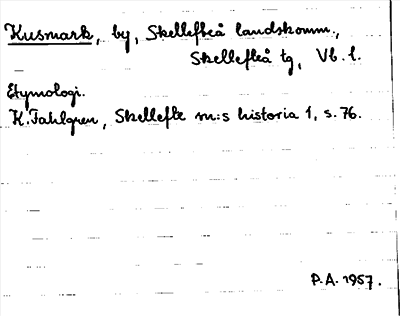 Kusmark, by, Skellefteå landskomm.,
Skellefteå tg, Vb. l.
Etymologi.
K. Fahlgren, Skellefte sn:s historia 1, s. 76.
P.A. 1957.